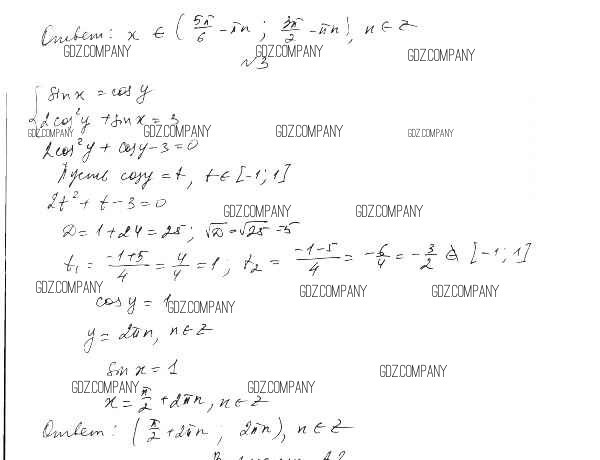 Ответ: x ∈ (5π/6 - πn ; 3π/2 - πn), n ∈ Z
GDZ.COMPANY GDZ.COMPANY GDZ.COMPANY
№3
{ sin x = cos y
2cos²y + sin x = 3
GDZ.COMPANY GDZ.COMPANY GDZ.COMPANY GDZ.COMPANY
2cos²y + cos y - 3 = 0
Пусть cos y = t, t ∈ [-1; 1]
2t² + t - 3 = 0
GDZ.COMPANY GDZ.COMPANY
D = 1 + 24 = 25; √D = √25 = 5
t₁ = (-1+5)/4 = 4/4 = 1; t₂ = (-1-5)/4 = -6/4 = -3/2 ∉ [-1; 1]
GDZ.COMPANY GDZ.COMPANY GDZ.COMPANY
cos y = 1
GDZ.COMPANY
y = 2πn, n ∈ Z
sin x = 1
GDZ.COMPANY
GDZ.COMPANY GDZ.COMPANY
x = π/2 + 2πn, n ∈ Z
Ответ: (π/2 + 2πn ; 2πn), n ∈ Z